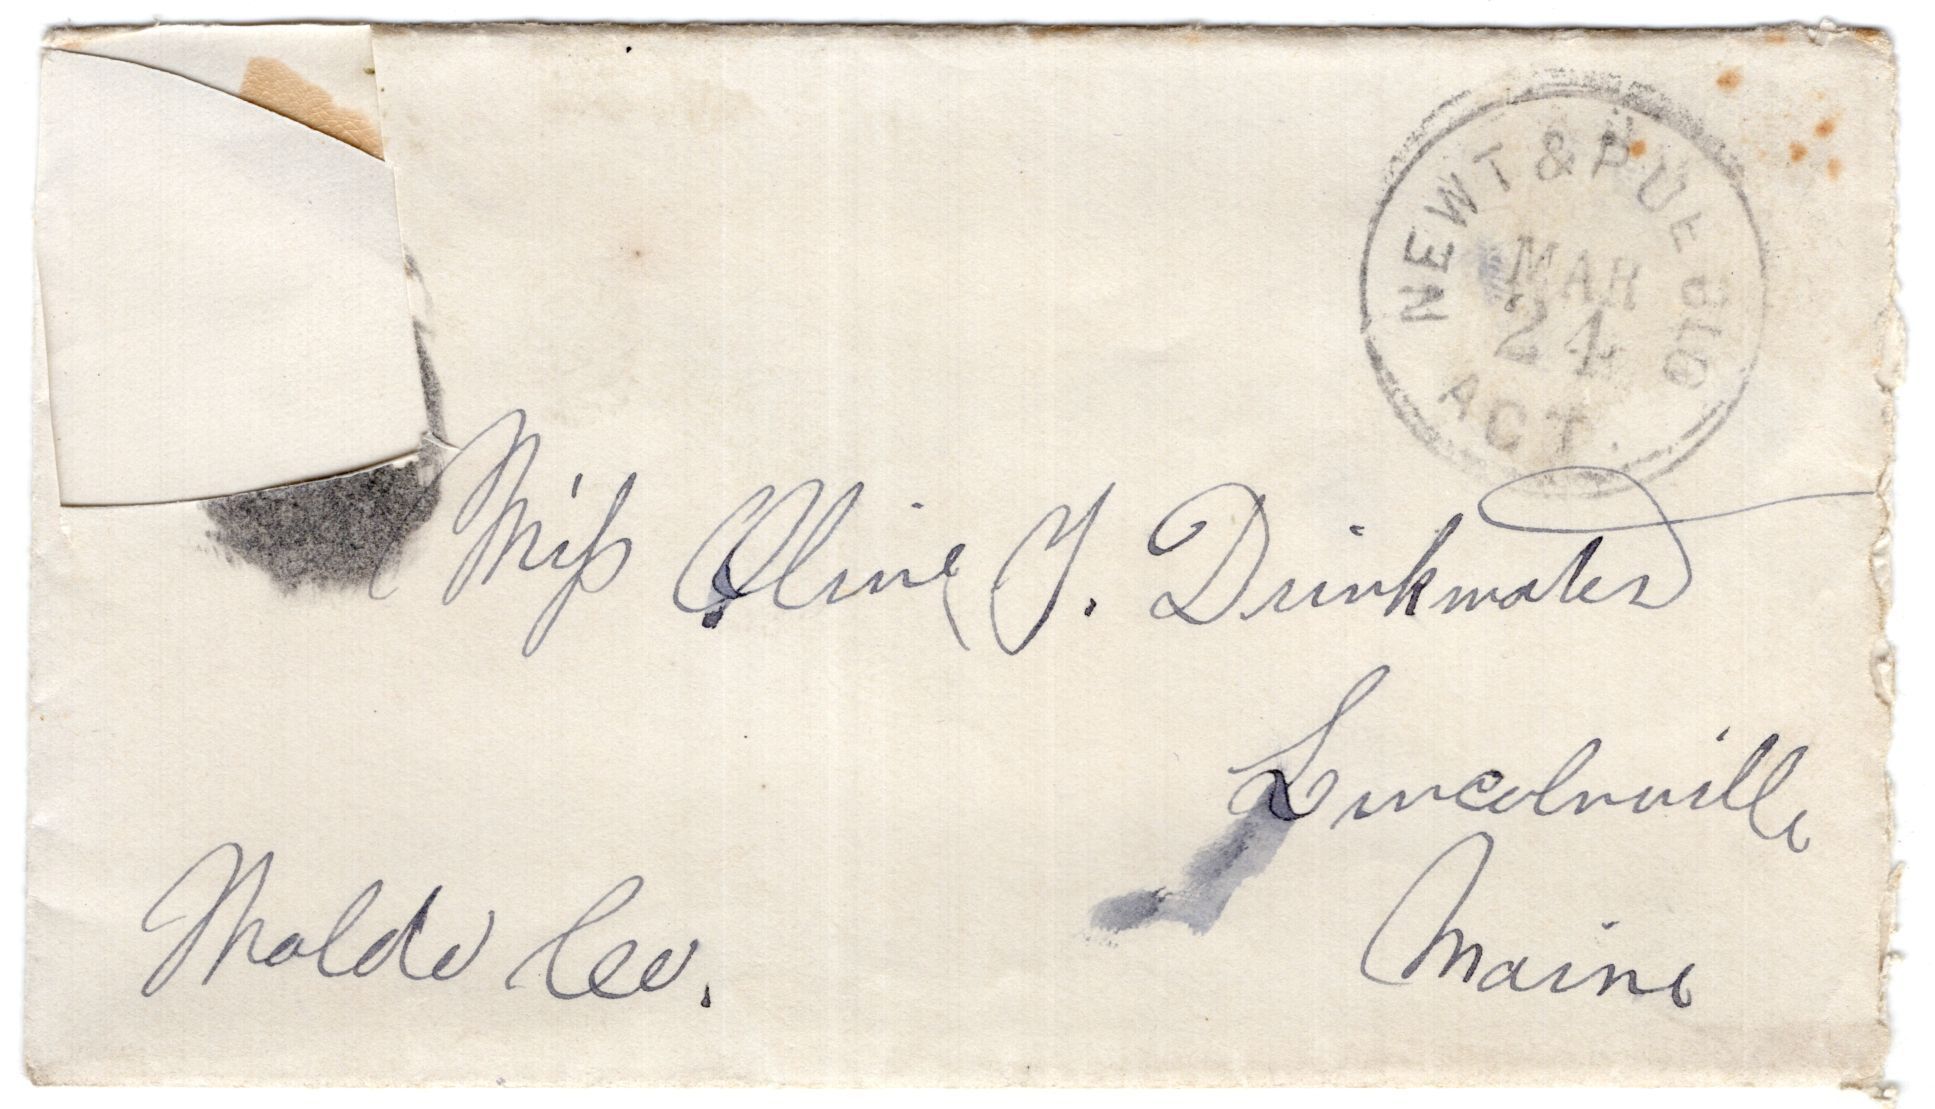 NEWT & PUEBLO
MAR
24
ACT.
Miss Olive J. Drinkwater
Lincolnville
Maine
Waldo Co.